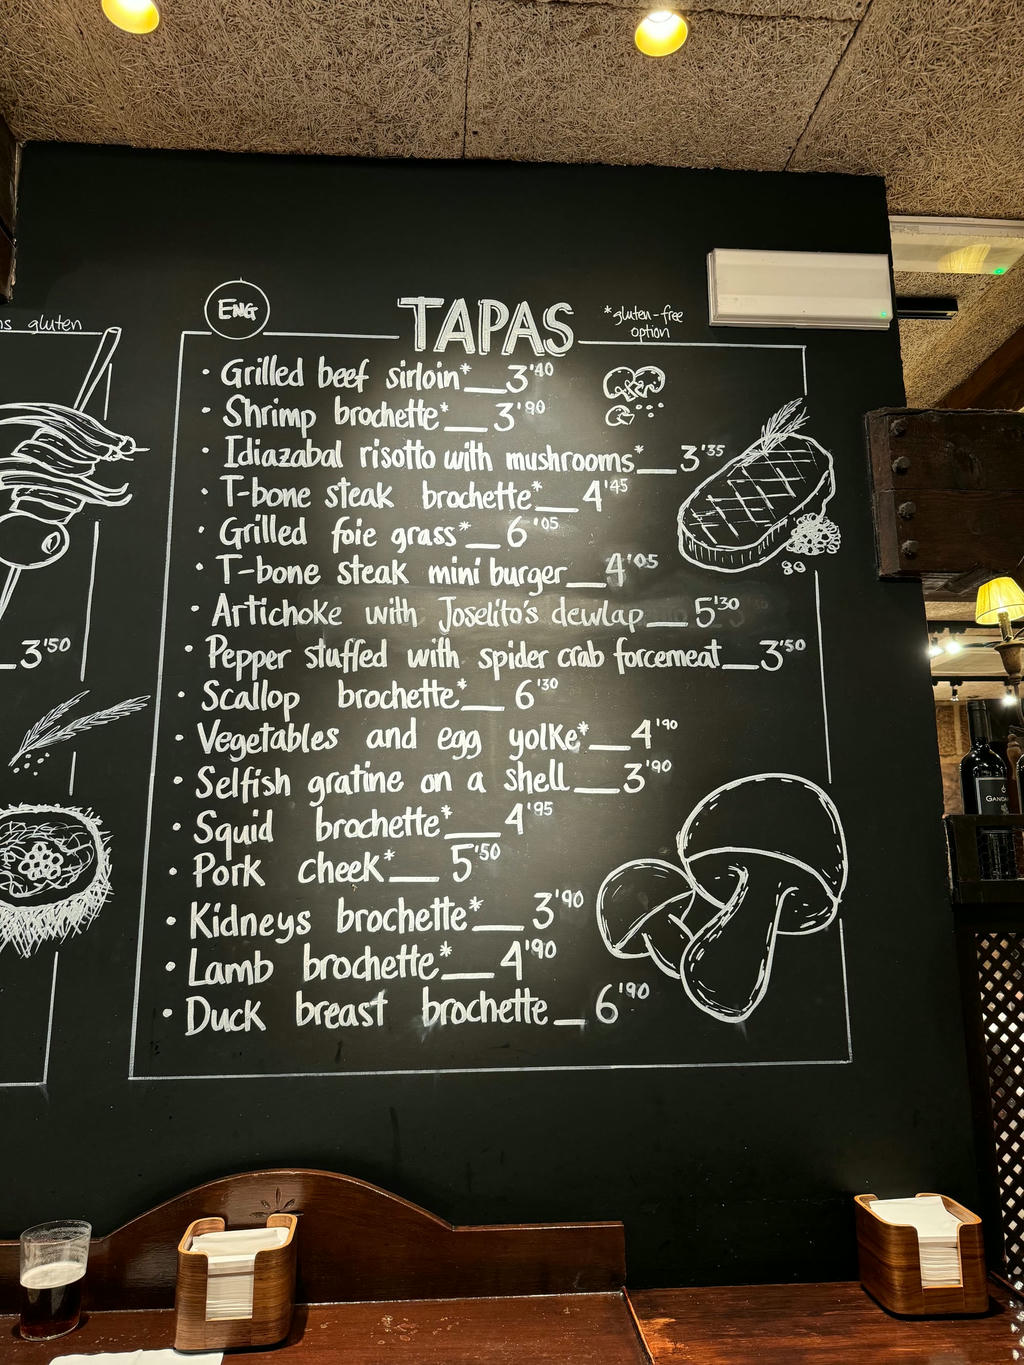 ns gluten
3'50
ENG
TAPAS
*gluten-free
option
• Grilled beef sirloin*__3'40
• Shrimp brochette*__3'90
• Idiazabal risotto with mushrooms*__3'35
• T-bone steak brochette*__4'45
• Grilled foie grass*__6'05
• T-bone steak mini burger__4'05
• Artichoke with Joselito's dewlap__5'30
• Pepper stuffed with spider crab forcemeat__3'50
• Scallop brochette*__6'30
• Vegetables and egg yolke*__4'90
• Selfish gratine on a shell__3'90
• Squid brochette*__4'95
• Pork cheek*__5'50
• Kidneys brochette*__3'90
• Lamb brochette*__4'90
• Duck breast brochette__6'90